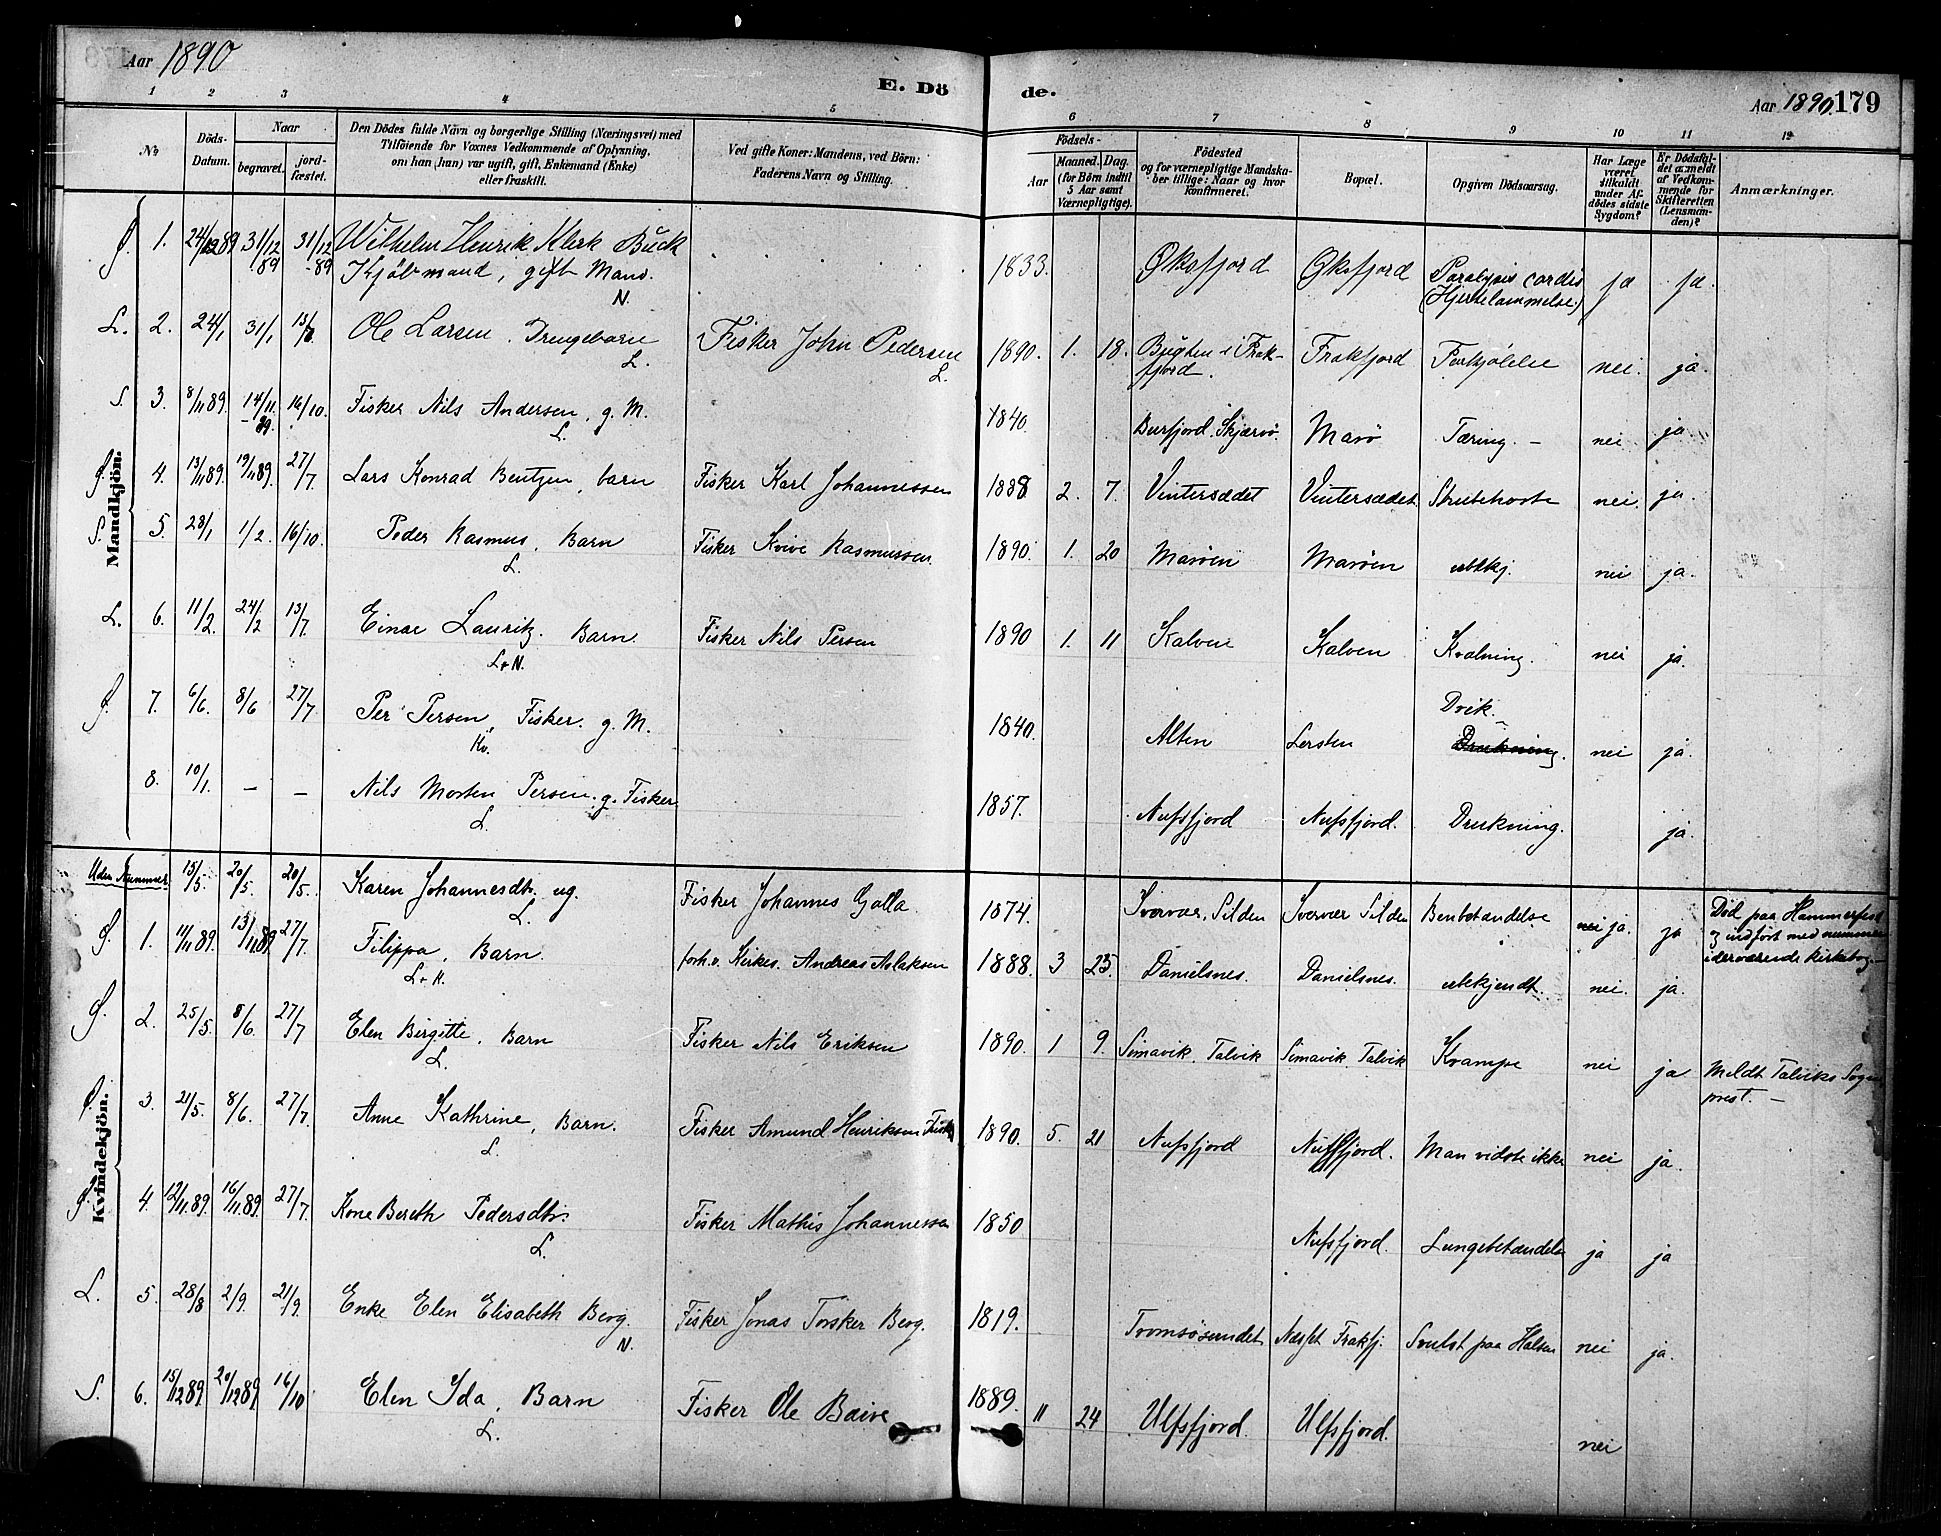 Aar 1890
E. Dö de.
Aar 1890. 179
1 2 3 4 5 6 7 8 9 10 11 12
No
Döds-Datum.
Naar
begravet.
jord-fæstet.
Den Dödes fulde Navn og borgerlige Stilling (Næringsvei) med
Tilföiende for Voxnes Vedkommende af Oplysning,
om han (hun) var ugift, gift, Enkemand (Enke)
eller fraskilt.
Ved gifte Koner: Mandens, ved Börn:
Faderens Navn og Stilling.
Födsels-
Aar
Maaned. Dag.
(for Börn indtil
5 Aar samt
Værnepligtige).
Födested
og for værnepligtige Mandska-
ber tillige: Naar og hvor
konfirmeret.
Bopæl.
Opgiven Dödsaarsag.
Har Læge
været
tilkaldt
under Af-
dödes sidste
Sygdom?
Er Dödsfal-
det anmeldt
af Vedkom-
mende for
Skifteretten
(Lensman-
den)?
Anmærkninger.
Mandkjön.
1. 24/12 89 31/12 89 31/12 -89 Wilhelm Henrik Klerk Buck
Kjøbmand, gift Mand. N. 1833. Øksfjord Øksfjord Paralysis cordis (Hjertelammelse) ja ja.
L. 2. 24/1 31/1 13/7 Ole Larsen, Drengebarn L. Fisker John Pedersen L. 1890. 1. 18. Bugten i Frak-
fjord. Frakfjord Forkjølelse nei. ja.
S. 3. 8/11 89. 14/11 -89. 16/10. Fisker Nils Andersen, g. M. L. 1840. Burfjord. Skjærvø. Marø Tæring. - nei ja
4. 13/11 89. 19/11 89. 27/7 Lars Konrad Bentzen, barn Fisker Karl Johannessen 1888 2. 7. Vintersædet Vintersædet Strubehoste nei. ja.
S. 5. 28/1 1/2. 16/10. Peder Rasmus, Barn L. Fisker Kvive Rasmussen 1890. 1. 20 Marøen Marøen ubekj. nei ja.
L. 6. 11/2. 24/2 13/7. Einar Lauritz. Barn. L+N. Fisker Nils Persen 1890 1. 11 Kalven Kalven Kvælning. nei ja.
7. 6/6. 8/6 27/7 Per Persen, Fisker. g. M. Kv. 1840. Alten Lersten Drik.
Drukning. nei ja.
8. 10/1. - - Nils Morten Persen. g. Fisker L. 1857. Nufsfjord Nufsfjord. Drukning. ja.
Kvindekjön.
Uden Nummer 15/5. 20/5. 20/5. Karen Johannesdtr. ug. L. Fisker Johannes Galla. 1874. Sværvær, Silden Sværvær Silden Benbetændelse nei ja. ja Død paa Hammerfest
og indført med nummer
iderværende Kirkebog. -
1. 11/11 89. 13/11 89. 27/7 Filippa, Barn. L+K. forh.v. Kirkes. Andreas Aslaksen 1888. 3 25. Danielsnes. Danielsnes. ubekjendt. nei. ja.
2. 25/5. 8/6. 27/7 Elen Birgitte, Barn L. Fisker Nils Eriksen 1890. 1 9. Simavik. Talvik Simavik. Talvik Krampe nei ja Meldt Talviks Sogne
prest. -
3. 21/5. 8/6. 27/7 Anne Kathrine, Barn. L. Fisker Amund Henriksen 1890. 5. 21 Nufsfjord Nufsfjord. Man vidste ikke nei ja.
4. 12/11.89. 16/11.89. 27/7. Kone Bereth Pedersdtr. L. Fisker Mathis Johannessen 1850 Nufsfjord. Lungebetændelse ja ja
L. 5. 28/8 2/9. 21/9. Enke Elen Elisabeth Berg. N. Fisker Jonas Torsker Berg. 1819. Tromsøsundet Næsset Frakfj. Svulst paa Halsen nei ja.
S. 6. 15/12 89. 20/12 89. 16/10 Elen Ida, Barn L. Fisker Ole Baive 1889. 11 24 Ulfsfjord. Ulfsfjord. nei